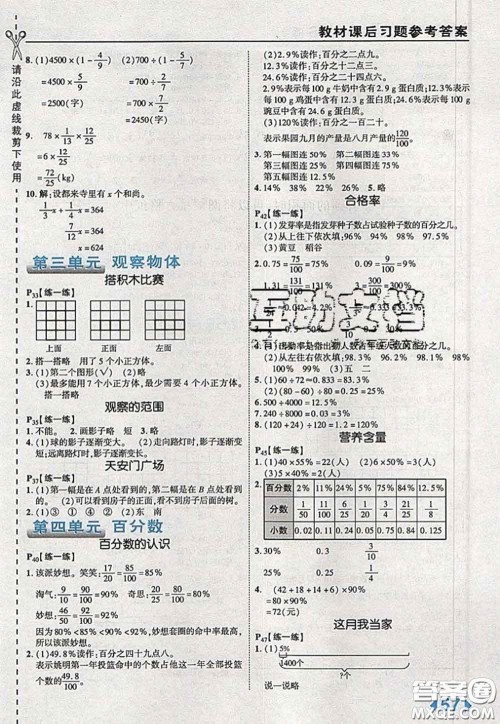 教材课后习题参考答案
请沿此虚线裁剪下使用
8. (1)4500×(1-4/9)
=4500×5/9
=2500(元)
(2)700÷(1-5/7)
=700÷2/7
=2450(元)
9. 78×1/13×12/25
=6×12/25
=72/25(kg)
10. 解:设都来寺里有 x 个和尚。
1/3x+1/4x=364
7/12x=364
x=624
第三单元 观察物体
搭积木比赛
P33【练一练】
上面 正面 左面
2. 搭一搭略 用了 5 个小正方体。
3. (1)第二个图形(√) (2)略
(3)最多能用 7 个小正方体,最少要用 5 个小正方体。
搭一搭略
观察的范围
P35【练一练】
1. 不能。 2. 画影子略 短 3. 略
4. (1)球的影子逐渐变大。 (2)走向路灯时,影子逐渐变
短;远离路灯时,影子逐渐变长。
天安门广场
P37【练一练】
1. (1)第一幅是在 A 点处看到的,第二幅是在 B 点处看到
的。 (2)第一幅是在房子里看到的,第二幅是在房子外
看到的。
2. (1)③ ① ④ ② (2)④
第四单元 百分数
百分数的认识
P40【练一练】
1. 该派妙想。笑笑:17/20=85/100=85%
淘气:9/10=90/100=90% 奇思:20/25=80/100=80%
妙想:46/50=92/100=92%
因为80%<85%<90%<92%,妙想套圈的命中率最高,
所以该派妙想。
2. (1)49.8%读作:百分之四十九点八。
表示姚明第一年投篮命中的个数占他第一年全部投篮
个数的49.8/100。
(2)2.9%读作:百分之二点九。
12.3%读作:百分之十二点三。
24.6%读作:百分之二十四点六。
表示每 100 g 牛奶中含有 2.9 g 蛋白质;每 100 g
鸡蛋中含有 12.3 g 蛋白质;每 100 g
豌豆中含有 24.6 g 蛋白质。
(3)120%读作:百分之一百二十。
表示果园九月的产量是八月产量的120/100。
3. 第一幅图连50% 第二幅图连25%
第三幅图连75% 第四幅图连31%
第五幅图连12.5%
4. 14% 58% 28% 86%
合格率
P42【练一练】
1. (1)发芽率是指发芽种子数占试验种子数的百分之几。
(2)从上往下依次填:95% 92% 90%
(3)黄豆 稻谷
互助文档
4. (1)出勤率是指出勤人数占年级人数的百分之几。
(2)从左往右依次填:96% 94% 98% 98% 94%
96% (3)五 二
5. (1)60÷72≈0.833=83.3%
(2)50÷60≈0.833=83.3%
6. 500÷4000=12.5%
8. (120+24)÷120=120%
营养含量
P45【练一练】
1. (1)40×55%=22 (2)60×20%=12
(3)5×40%=2
2.
百分数 2% 11% 64% 25% 5% 12% 24%
分数 1/50 11/100 16/25 1/4 1/20 3/25 6/25
小数 0.02 0.11 0.64 0.25 0.05 0.12 0.24
3. 30% 0.3 3/10
4. (42+9+18+14+7)
×80%
=90×80%
=72(元)
这月我当家
P47【练一练】
1. (1)5%
400个
?个
说一说略
答案圈
MXQE.COM